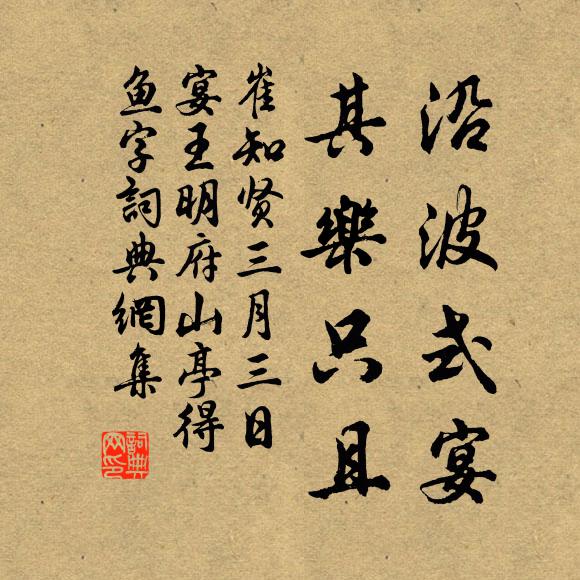 沿波式宴
其樂只且
崔知贤三月三日
宴王明府山亭得
鱼字詞典網集
詞典
网印